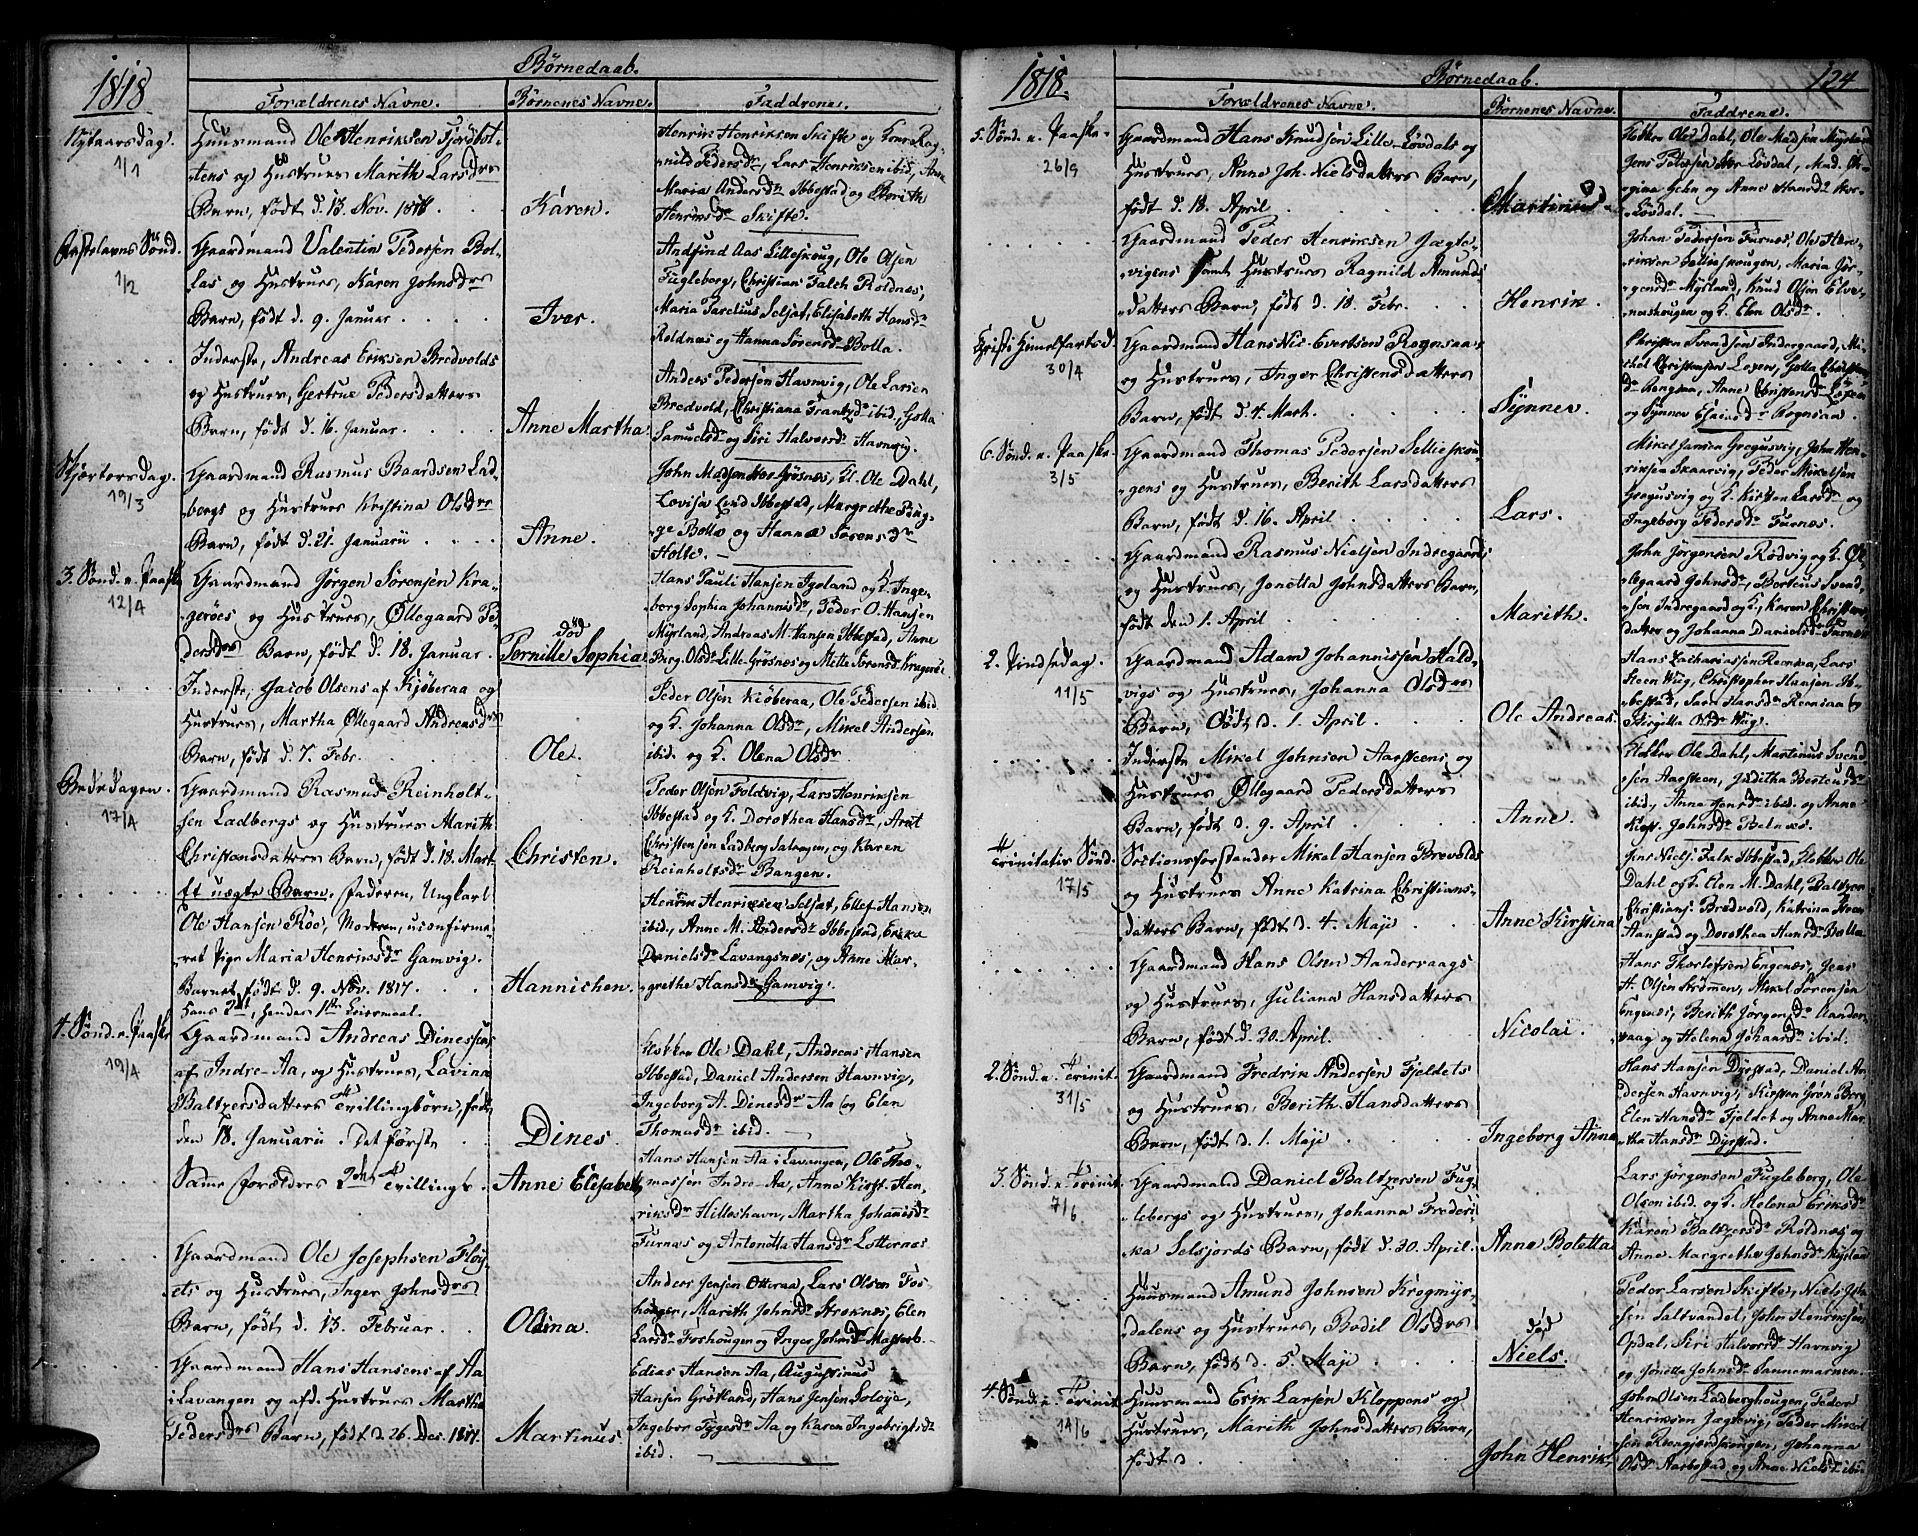 1818
Børnedaab.
Forældrenes Navne. Børnenes Navne. Faddrene.
Nytaarsdag.
1/1
Huusmand Ole Henriksen Fjordbot-
tens og Hustrues Marith Larsdrs
Barn, født d. 13. Nov. 1817
Karen.
Henrik Henriksen Skifte og Kone Rag-
nild Pedersdr, Lars Henriksen ibid, Ane
Maria Andersdr Ibbestad og Berith
Henriksdr Skifte.
Fastelavns Sönd.
1/2
Gaardmand Valentin Pedersen Bol-
las og Hustrues, Karen Johnsdrs
Barn, født d. 9. Januar
Iver.
Andfind Aas Lilleskoug, Ole Olsen
Fugleborg, Christian Falch Roldnes,
Maria Parelius Selsæt, Elisabeth Hansdr
Roldnæs og Hanna Sørensdr Bolla.
Inderste, Andreas Eriksen Bredvolds
og Hustrues, Gertrue Pedersdatters
Barn, født d. 16. Januar
Anne Martha
Anders Pedersen Havnvig, Ole Larsen
Bredvold, Christiana Frantzdr ibid, Golla
Samuelsdr og Siri Halvorsdr Havnvig.
Skjærtorsdag.
19/3
Gaardmand Rasmus Baardsen Lad-
bergs og Hustrues Kristina Olsdrs
Barn, født d. 21. Januarii
Anne.
John Madsen Groesnæs, K. Ole Dahl,
Lovisa Lund Ibbestad, Margrethe Bug-
ge Bolla og Hanna Sørensdr
Holte.
3. Sönd. e. Paaske
12/4
Gaardmand Jörgen Sörensen Kra-
geröes og Hustrues, Ollegaard Pe-
dersdrs Barn, født d. 18. Januar.
död
Pernille Sophia
Hans Pauli Hansen Igeland og K. Inge-
borg Sophia Johannisdr, Peder O. Hansen
Myrland, Andreas M. Hansen Ibbestad, Anne
Birg. Olsdr Lille-Grösnes og Mette Sörensdr Kragerö
Inderste, Jacob Olsens af Kjöberaa og
Hustrues, Martha Ollegaard Andreasdrs
Barn, født d. 7. Febr.
Ole.
Peder Olsen Kiöberaa, Ole Pedersen ibid
og K. Johanna Olsdr, Mikel Andersen
ibid. og K. Olena Olsdr
Bededagen.
17/4
Gaardmand Rasmus Reinholt-
sen Ladbergs og Hustrues Marith
Christensdatters Barn, født d. 18. Mart
Christen.
Peder Olsen Foldvig, Lars Henriksen
Ibbestad og K. Dorothea Hansdr, Arnt
Christensen Ladberg Salangen, og Karen
Reinholtsdr Bangen.
Et uægte Barn. Faderen, Ungkarl
Ole Hansen Röe, Moderen, uconfirme-
ret Pige Maria Henriksdr Gamvig.
Barnet født d. 9. Nov. 1817.
Hans 2det, hendes 1ste Leiermaal.
Hannichen.
Henrik Henriksen Selsæt, Ellef Hansen
ibid, Anne M. Andersdr Ibbestad, Erika
Danielsdr Lavangsnæs, og Anne Mar-
grethe Hansdr Gamvig.
4. Sönd. e. Paaske
19/4
Gaardmand Andreas Dinessens
af Indre-Aa, og Hustrues, Lavina
Baltzersdatters Tvillingbörn, født
den 18. Januarii. Det første
Dines.
Klokker Ole Dahl, Andreas Hansen
Ibbestad, Daniel Andersen Havnvig,
Ingeborg A. Dinesdr Aa og Elen
Thomasdr ibid.
Same Forældres 2den Tvillingb.
Anne Elisabeth
Hans Hansen Aa i Lavangen, Ole Tho-
massen Indre-Aa, Anne Kirst. Hen-
riksdr Hilleshavn, Martha Johannisdr
Furnæs og Antonetta Hansdr Lotternes
Gaardmand Ole Josephsen Flöy-
ets og Hustrues, Inger Johnsdrs
Barn, født d. 13. Februar
Olina.
Anders Jensen Otteraa, Lars Olsen Fos-
hougen, Marith Johnsdr Stroknæs, Elen
Larsdr Foshougen og Inger Johnsdr
Gaardmand Hans Hansens af Aa
i Lavangen og afd. Hustrues Martha
Pedersdrs Barn, født d. 26. Dec. 1817.
Martinus
Edias Hansen Aa, Augustinus
Hansen Gröttland, Hans Jensen Soløye,
Ingebor Tygesdr Aa og Karen Ingebrigtsdr
ibid.
1818.
Børnedaab.
124
Forældrenes Navne. Børnenes Navne. Faddrene.
5. Sönd. e. Paaske
26/9
Gaardmand Hans Knudsen Lille-Lövdals og
Hustrues, Anne Joh. Nielsdatters Barn,
født d. 18. April.
Martinus
Klokker Ole Dahl, Ole Madsen Myrland
Jens Pedersen Lövdal, Mad.
og Anne Hansdr
Lövdal.
Gaardmand Peder Henriksen Jægte-
vigens samt Hustrues Ragnild Amunds
datters Barn, født d. 18. Febr.
Henrik.
Johan Pedersen Furnes, Ole Hen-
riksen Sellieskougen, Maria Jör-
gensdr Myrland, Knud Olsen Elve-
neshougen og K. Elen Olsdr.
Christi Himelfartsd.
30/4
Gaardmand Hans Nic. Evertsen Rognsaas
og Hustrues, Inger Christensdatters
Barn, født d. 4. Marti.
Synner.
Christen Svendsen Indergaard, Mi-
chel Christensen Loxen, Golla Christens-
dr Rognsaa, Anne Christensdr Löxen
og Synner Esaiasdr Rognsaa.
6. Sönd. e. Paaske
3/5
Gaardmand Thomas Pedersen Sellieskou-
gens og Hustrues, Berith Larsdatters
Barn, født d. 16. April
Lars.
Mikel Jansen Gregusvig, John Hen-
riksen Skaarvig, Peder Mikelsen
Gregusvig og K. Kirsten Larsdr og
Ingeborg Pedersdr Furnes.
Gaardmand Rasmus Nielsen Indregaards
og Hustrues, Jonetta Johnsdatters Barn,
født den 1. April
Marith.
John Jörgensen Rödvig og K. Ol-
legaard Johnsdr, Berteus Svend-
sen Indregaard og K. Karen Christens-
datter og Johanna Danielsdr Furnes
2. Pindsedag.
11/5
Gaardmand Adam Johannissen Hald-
vigs og Hustrues, Johanna Olsdrs
Barn, født d. 1. April
Ole Andreas.
Hans Zachariassen Reensaa, Lars
Steen Wüg, Christopher Hansen Ib-
bestad, Sara Hansdr Reensaa og
Birgitta Olsdr Wüg.
Inderste Mikel Johnsen Aarsteens og
Hustrues Ollegaard Pedersdatters
Barn, født d. 9. April
Anne.
Klokker Ole Dahl, Martinus Svend-
sen Aarsteen, Juditha Berteusdr
ibid, Anna Jensdr ibid. og Anne
Kirst. Johnsdr
Trinitatis Sönd.
17/5
Sectionsforstander Mikel Hansen Brevolds
og Hustrues Anne Katrina Christians-
datters Barn, født d. 4. Maji
Anne Kirstina
Jens Nielsen Falk Ibbestad, Klokker Ole
Dahl og K. Elen M. Dahl, Baltzer
Christians. Bredvold, Katrina Steen
Aanstad og Dorothea Hansdr Bolla
Gaardmand Hans Olsen Aandervaags
og Hustrues, Juliana Hansdatters
Barn, født d. 30. April.
Nicolai.
Hans Thorlefsen Engenæs, Jens
H. Olsen Strömen, Mikel Sörensen
Engenæs, Berith Jörgensdr Aander-
vaag og Helena Johansdr ibid.
2. Sönd. e. Trinit.
31/5
Gaardmand Fredrik Andersen Fjeldets
og Hustrues, Berith Hansdatters
Barn, født d. 1. Maji
Ingeborg Anna
Hans Hansen Dyrstad, Daniel An-
dersen Havnvig, Kirsten Grön Berg
Elen Hansdr Fjeldet og Anne Mar-
tha Hansdr Dyrstad.
3. Sönd. e. Trinit.
7/6
Gaardmand Daniel Baltzersen Fug-
lebergs og Hustrues, Johanna Frederi-
ka Selsjords Barn, født d. 30 April.
Anne Boletta
Lars Jörgensen Fugleberg, Ole
Olsen ibid. og K. Helena Eriksdr
Karen Baltzersdr Roldnæs og
Anne Margrethe Johnsdr Myrland
Huusmand Amund Johnsen Krogmyr-
dalens og Hustrues, Bodil Olsdrs
Barn, født d. 5. Maji
död
Niels.
Peder Larsen Skifte, Niels Joh-
sen Saltvandet, John Henriksen
Opdal, Siri Halvorsdr Havnvig
og Jonetta Johnsdr Sannemarnen.
4. Sönd. e. Trinit.
14/6
Huusmand Erik Larsen Kloppens og
Hustrues, Marith Johnsdatters Barn,
født d
John Henrik
John Olsen Ladberghougen, Peder
Henriksen Jægtevig, Peder Mikel-
sen Reengjerdskougen, Johanna
Olsdr Aarbostad og Anne Nielsdr ibid